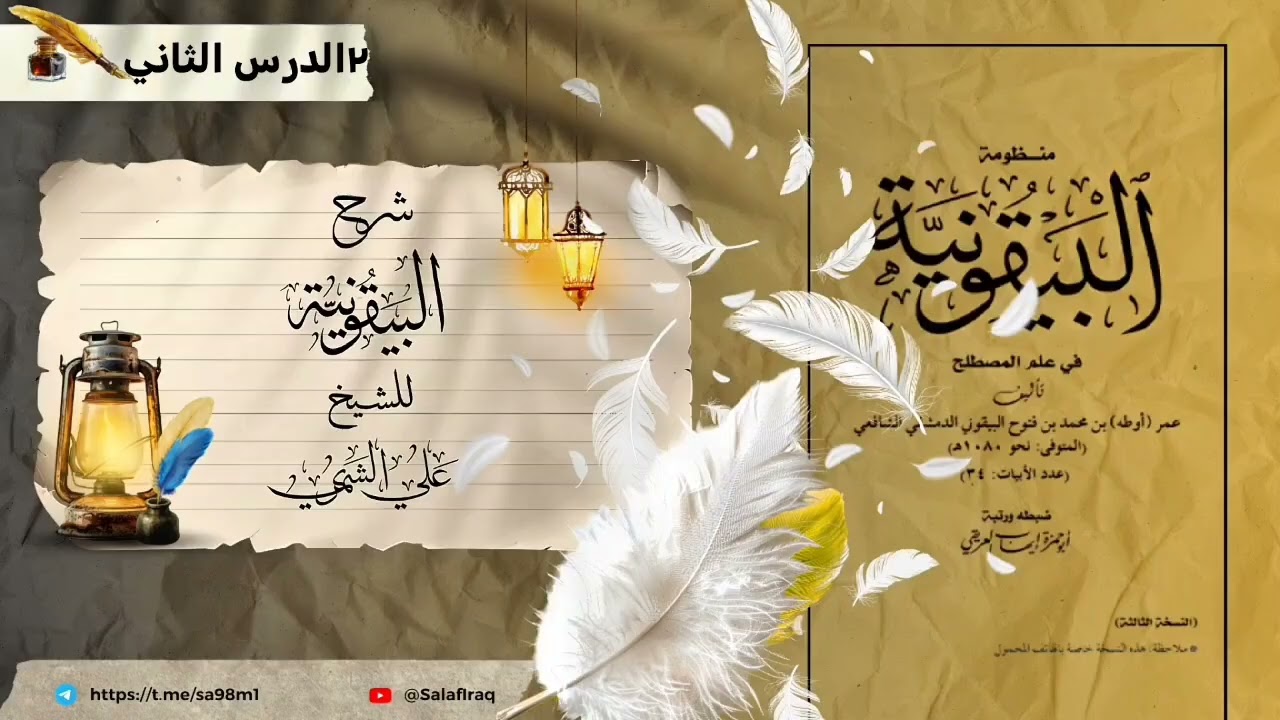 ٢الدرس الثاني
شرح
البيقونية
للشيخ
علي الشمري
منظومة
البيقونية
في علم المصطلح
تأليف
عمر (أوطه) بن محمد بن فتوح البيقوني الدمشقي الشافعي
(المتوفى: نحو ١٠٨٠هـ)
(عدد الأبيات: ٣٤)
ضبطه ورتبه
أبو حمزة إيهاب العريقي
(النسخة الثالثة)
* ملاحظة: هذه النسخة خاصة بالهاتف المحمول
https://t.me/sa98m1
@SalafIraq